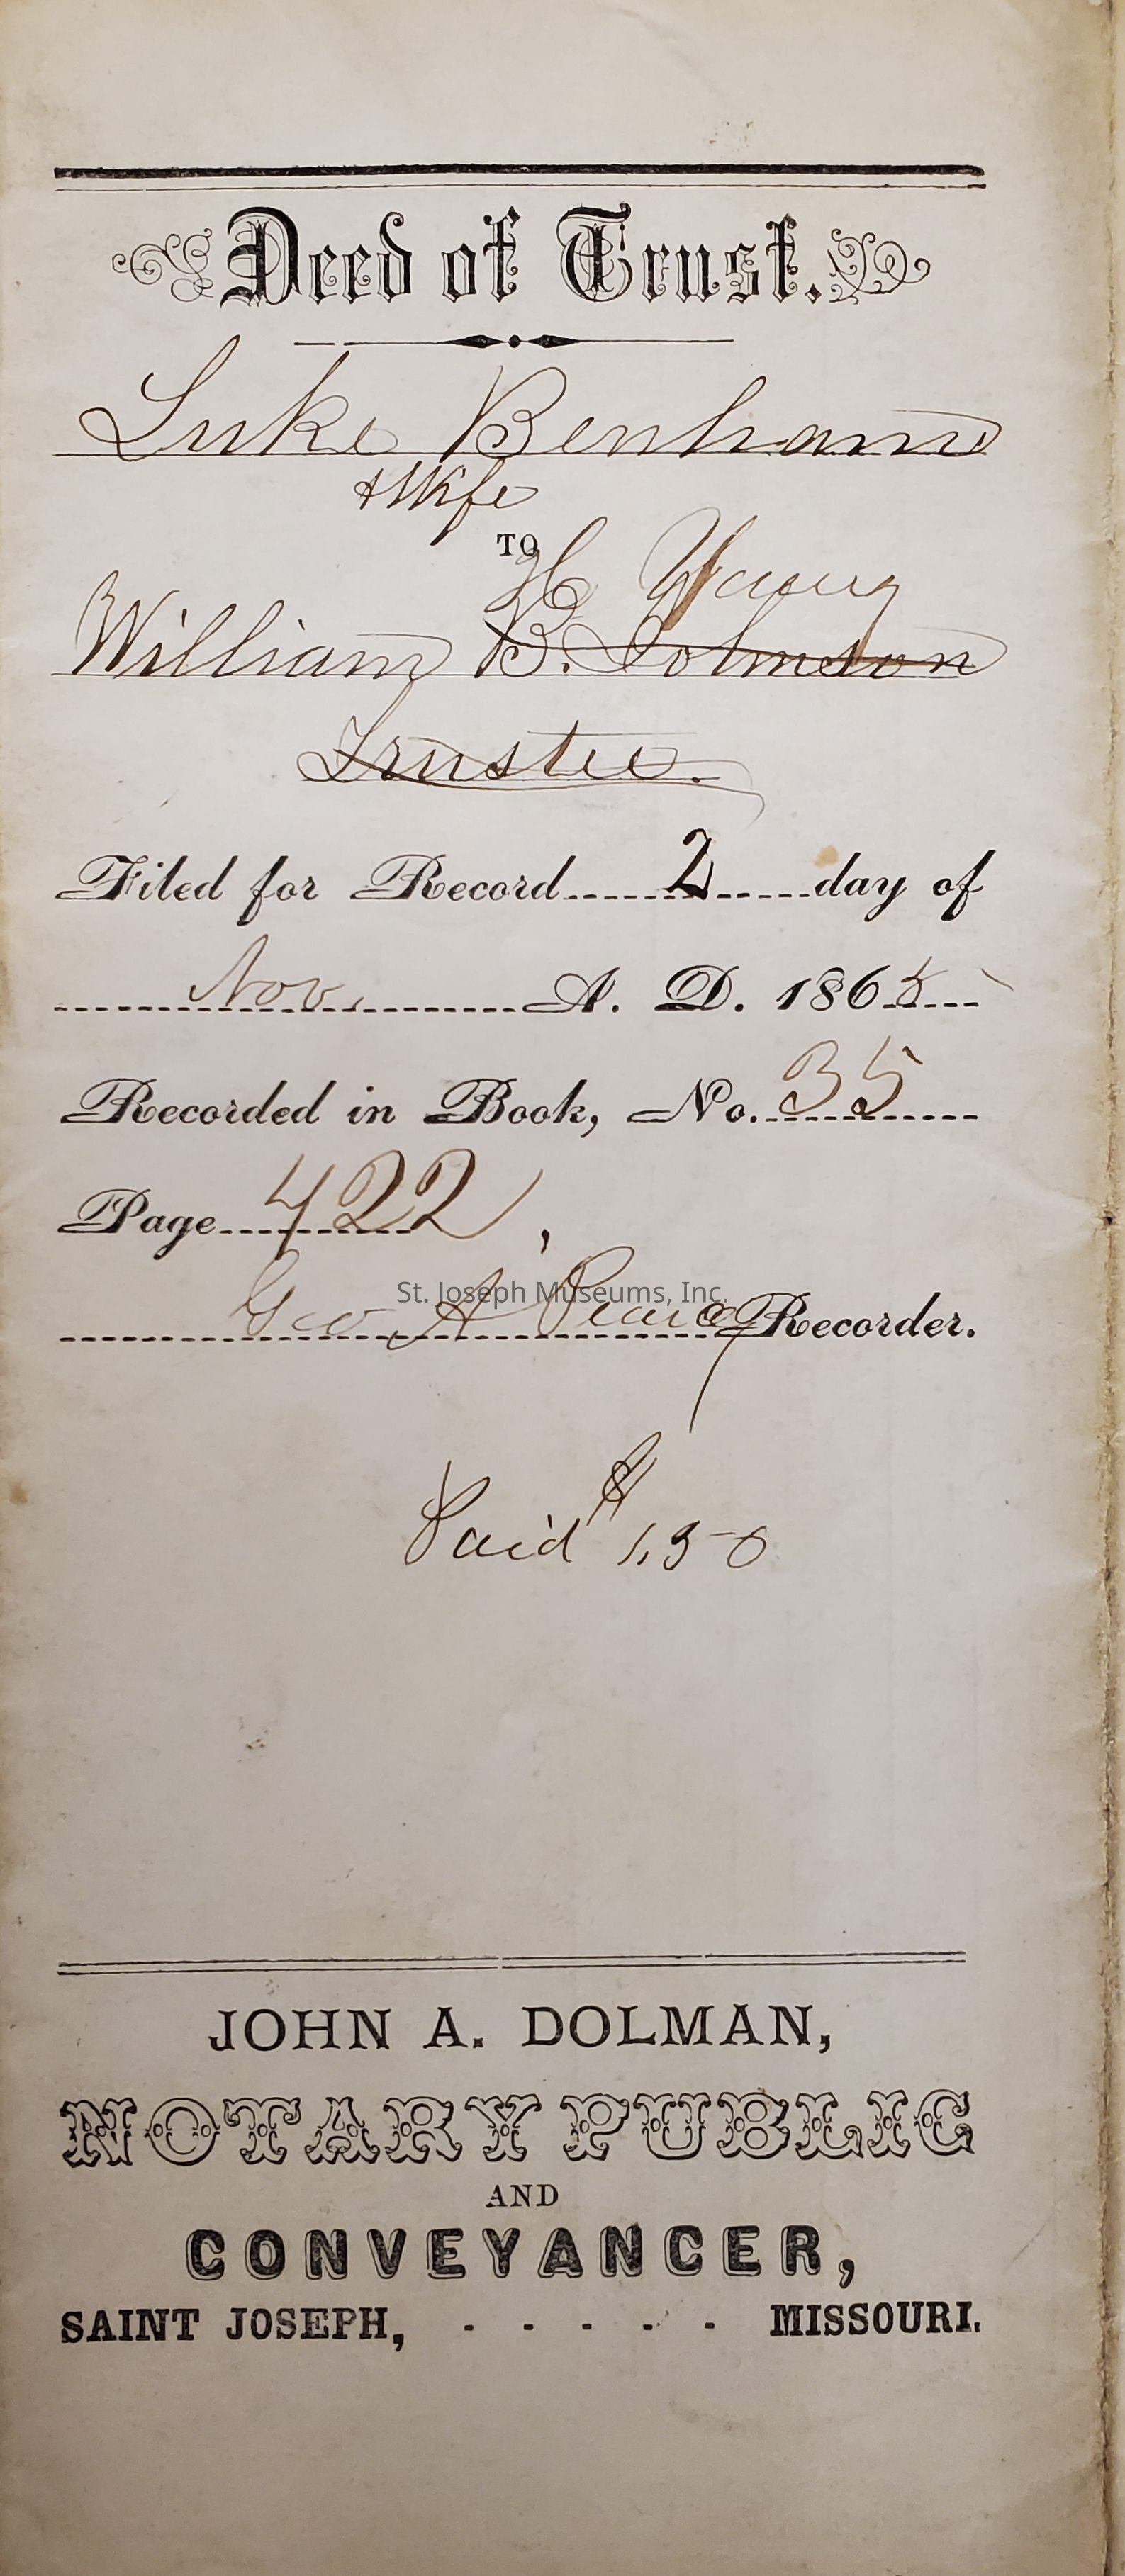 Deed of Trust.
Luke Benham
& Wife
TO
H Young
William B. Johnson
Trustee.
Filed for Record 2 day of
Nov. A. D. 1865
Recorded in Book, No. 35
Page 422,
St. Joseph Museums, Inc.
Geo A Pearcy Recorder.
Paid $1,50
JOHN A. DOLMAN,
NOTARY PUBLIC
AND
CONVEYANCER,
SAINT JOSEPH, - - - - - MISSOURI.